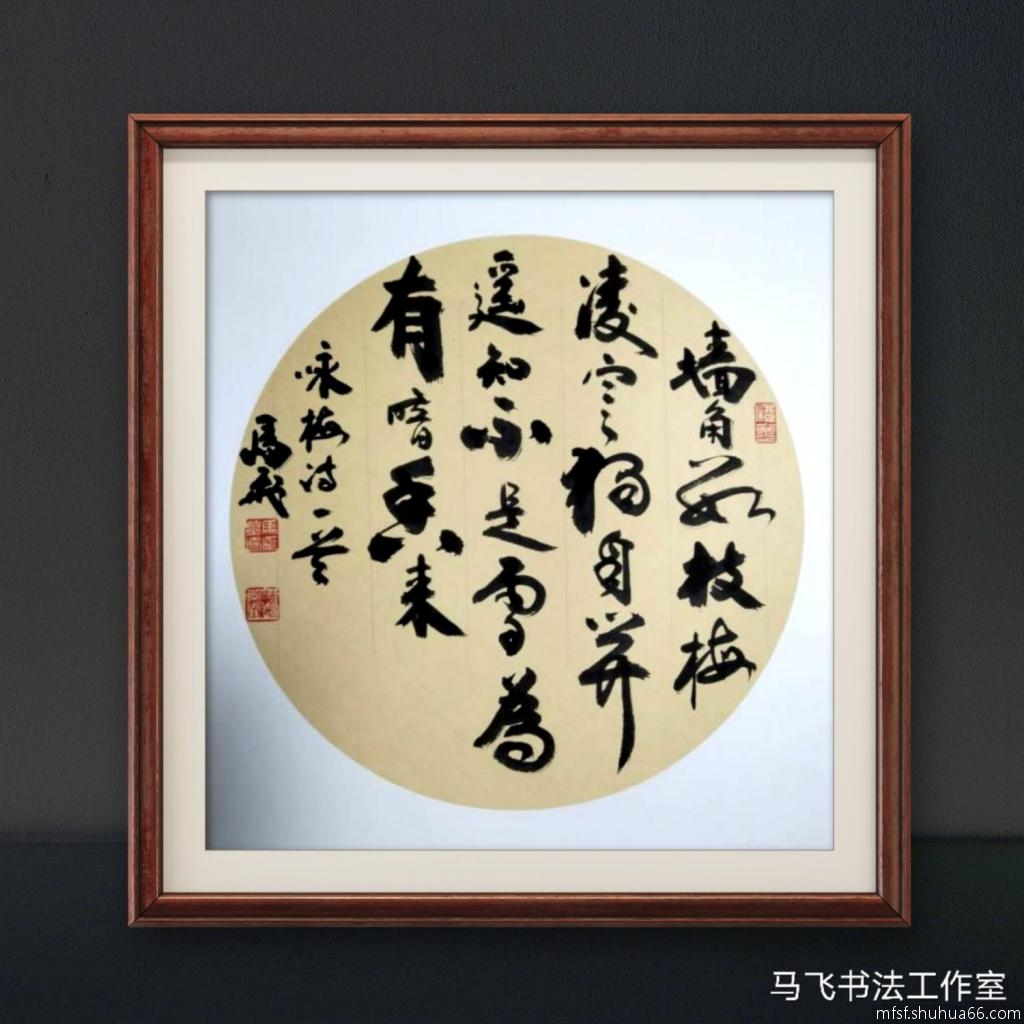 墙角数枝梅
凌寒獨自开
遥知不是雪為
有暗香来
咏梅诗一首
馬飛
马飞书法工作室
mfsf.shuhua66.com